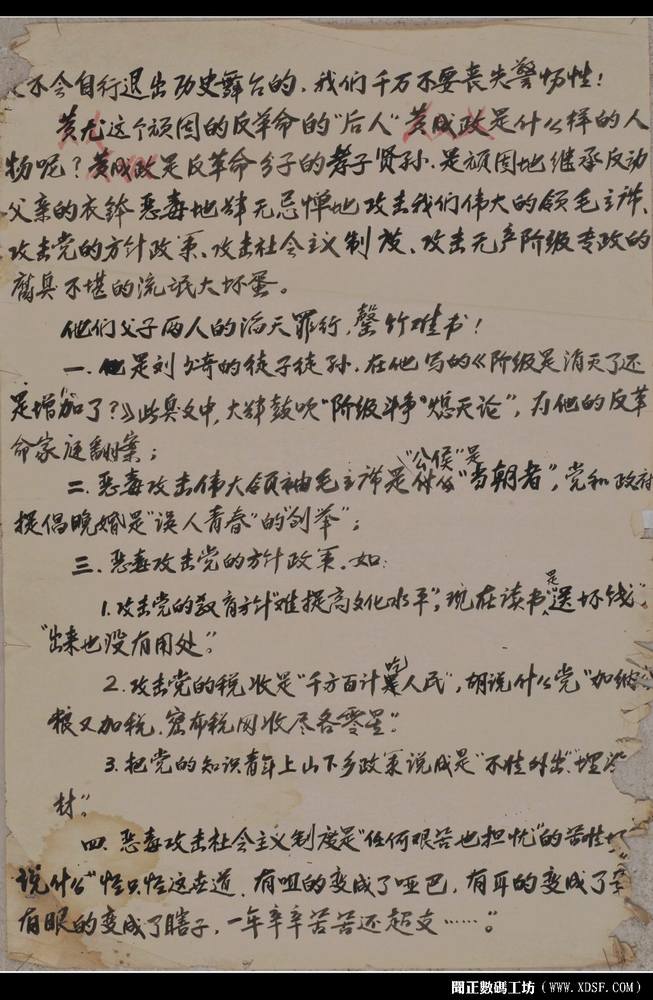 不会自行退出历史舞台的，我们千万不要丧失警惕性！
黄尤这个顽固的反革命的“后人”黄成政是什么样的人
物呢？黄成政是反革命分子的孝子贤孙，是顽固地继承反动
父亲的衣钵恶毒地肆无忌惮地攻击我们伟大的领毛主席、
攻击党的方针政策、攻击社会主义制度、攻击无产阶级专政的
腐臭不堪的流氓大坏蛋。
他们父子两人的滔天罪行，罄竹难书！
一、他是刘少奇的徒子徒孙，在他写的《阶级是消灭了还
是增加了？》此臭文中，大肆鼓吹“阶级斗争”熄灭论”，为他的反革
命家庭翻案；
二、恶毒攻击伟大领袖毛主席是“公侯”是“当朝者”，党和政府
提倡晚婚是“误人青春”的“创举”；
三、恶毒攻击党的方针政策，如：
1.攻击党的教育方针“难提高文化水平”，现在读书是“送坏钱”
“出来也没有用处”。
2.攻击党的税收是“千方百计吃人民”，胡说什么党“加纳
粮又加税，密布税网收尽各零星”。
3.把党的知识青年上山下乡政策说成是“不惜外出”“埋没
材”。
四、恶毒攻击社会主义制度是“任何艰苦也担忧”的苦
说什么“怪只怪这世道，有咀的变成了哑巴，有耳的变成了
有眼的变成了瞎子，一年辛辛苦苦还超支……”。
聞正數碼工坊（WWW.XDSF.COM）